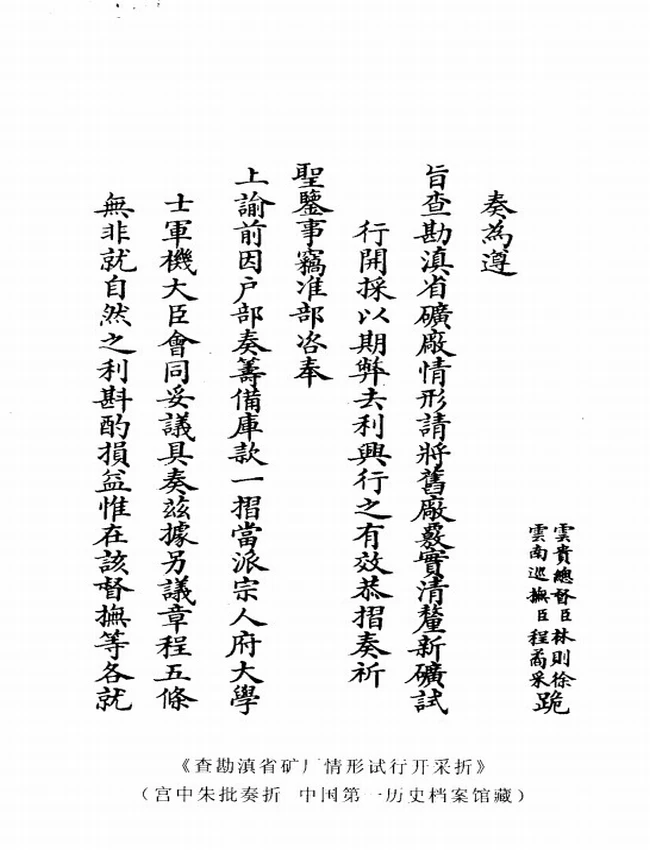 雲貴總督臣林則徐
雲南巡撫臣程矞采跪
奏為遵
旨查勘滇省礦廠情形請將舊廠覈實清釐新礦試
行開採以期弊去利興行之有效恭摺奏祈
聖鑒事竊准部咨奉
上諭前因户部奏籌備庫款一摺當派宗人府大學
士軍機大臣會同妥議具奏兹據另議章程五條
無非就自然之利斟酌損益惟在該督撫等各就
《查勘滇省矿厂情形试行开采折》
（宫中朱批奏折 中国第一历史档案馆藏）